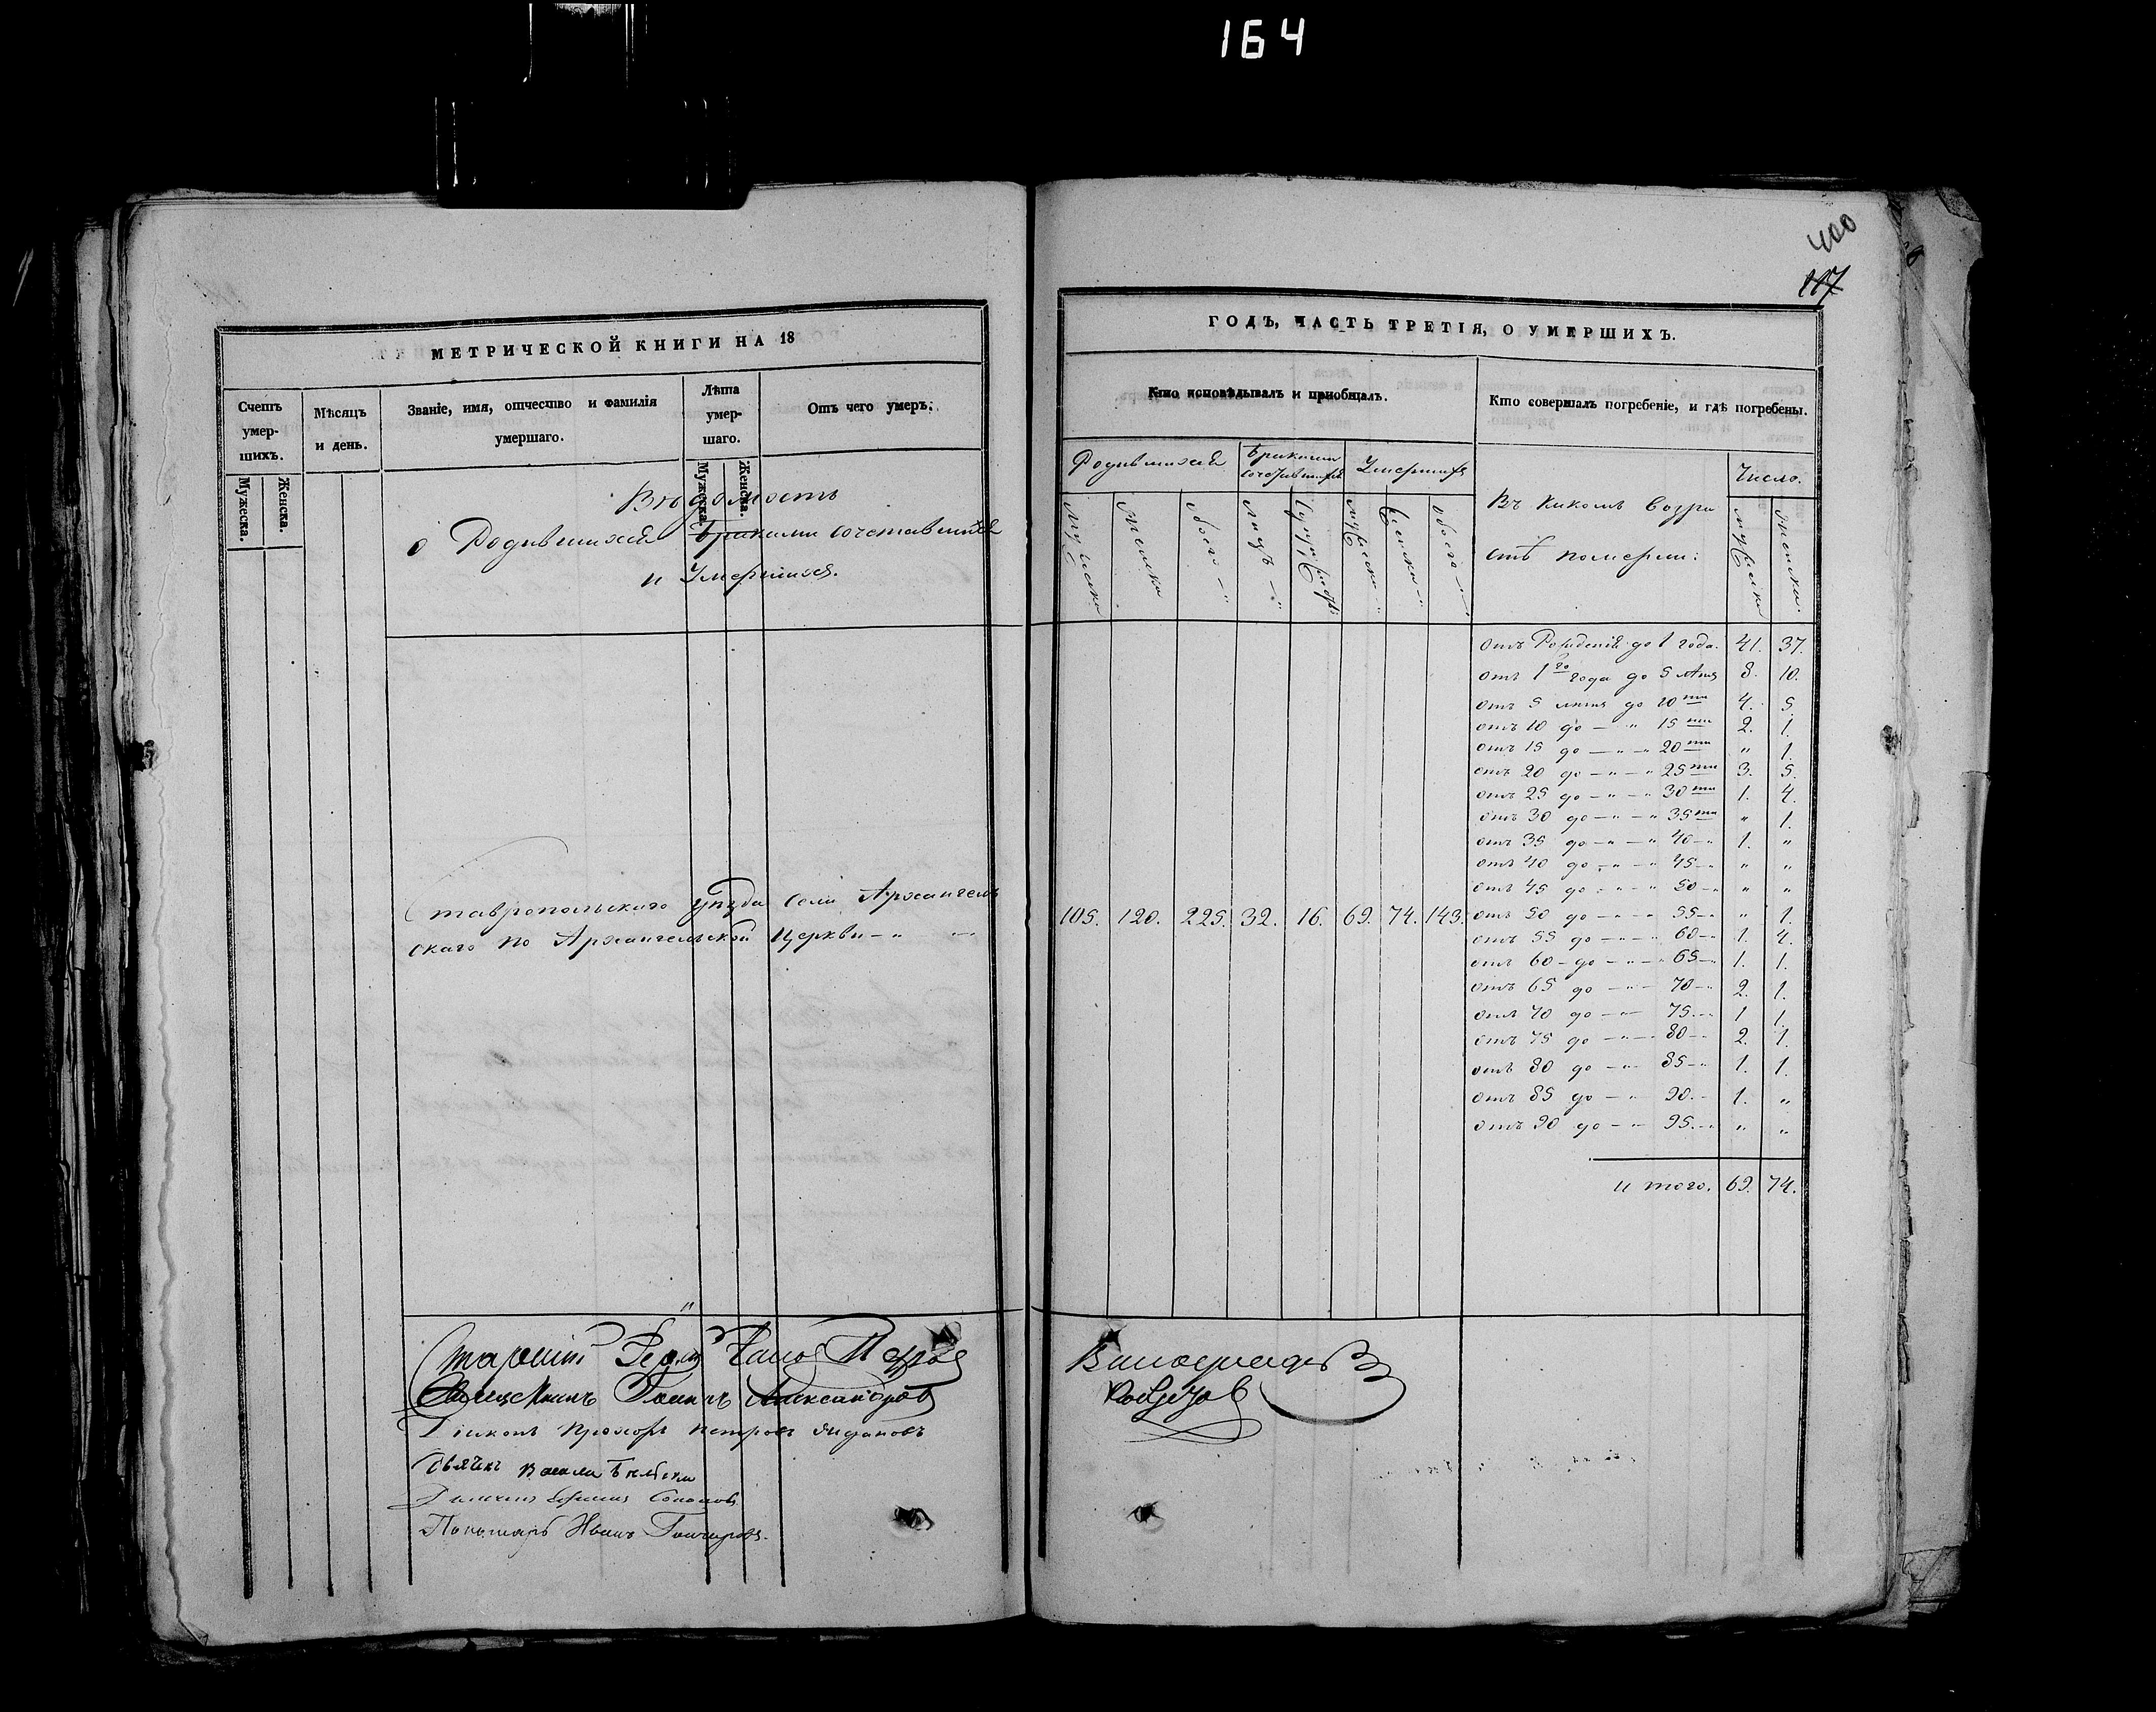 164
400
117
МЕТРИЧЕСКОЙ КНИГИ НА 18
Счетъ умер-шихъ.
Мужеска.
Женска.
Мѣсяцъ и день.
Званіе, имя, отчество и фамилія умершаго.
Лѣта умер-шаго.
Мужеска.
Женска.
Отъ чего умеръ.
Вѣдомость
о Родившихся Бракомъ сочетавшихся
и Умершихъ.
Ставропольскаго уѣзда села Архангель
скаго по Архангельской Церкви
Іоаннъ Александровъ
Діаконъ Прохоръ Петровъ
Дьячекъ
Пономарь Иванъ Гончаровъ
ГОДЪ, ЧАСТЬ ТРЕТІЯ, О УМЕРШИХЪ.
Кто исповѣдывалъ и пріобщалъ.
Кто совершалъ погребеніе, и гдѣ погребены.
Родившихся
Бракомъ сочетавшихся
Умершихъ
Въ какомъ возра
стѣ померли:
Число.
Мужеска
Женска
Обоего
Лицъ
Супружествъ
Мужеска
Женска
Обоего
Мужеска
Женска.
105. 120. 225. 32. 16. 69. 74. 143.
отъ Рожденія до 1 года. 41. 37.
отъ 1го года до 5 лѣтъ 8. 10.
отъ 5 лѣтъ до 10ти 4. 5
отъ 10 до — " 15ти 2. 1.
отъ 15 до — " — " 20ти " 1.
отъ 20 до — " — " 25ти 3. 5.
отъ 25 до — " — " 30ти 1. 4.
отъ 30 до — " — " 35ти " 1.
отъ 35 до — " — " 40 — " 1. "
отъ 40 до — " — " 45 — " " "
отъ 45 до — " — " 50 — " " "
отъ 50 до — " — " 55 — " " 1.
отъ 55 до — " — " 60 — " 1. 4.
отъ 60 до — " — " 65 — " 1. 1.
отъ 65 до — " — 70 — " 2. 1.
отъ 70 до — " — 75. — " 1 1.
отъ 75 до — " — 80 — " 2. 1.
отъ 80 до — " — 85 — " 1. 1.
отъ 85 до — " 90. — 1. "
отъ 90 до — " — 95. — " " "
и того. 69. 74.